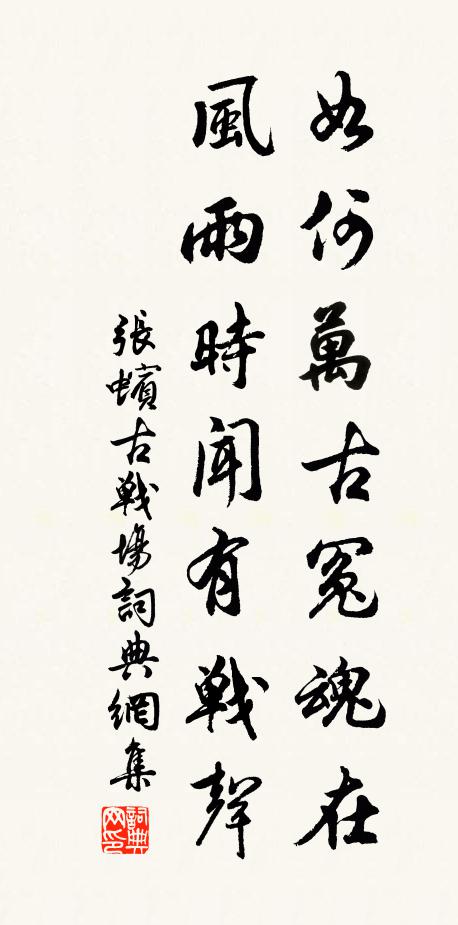 如何萬古冤魂在
風雨時聞有戰聲
張蠙古戰場詞典網集
詞典網印